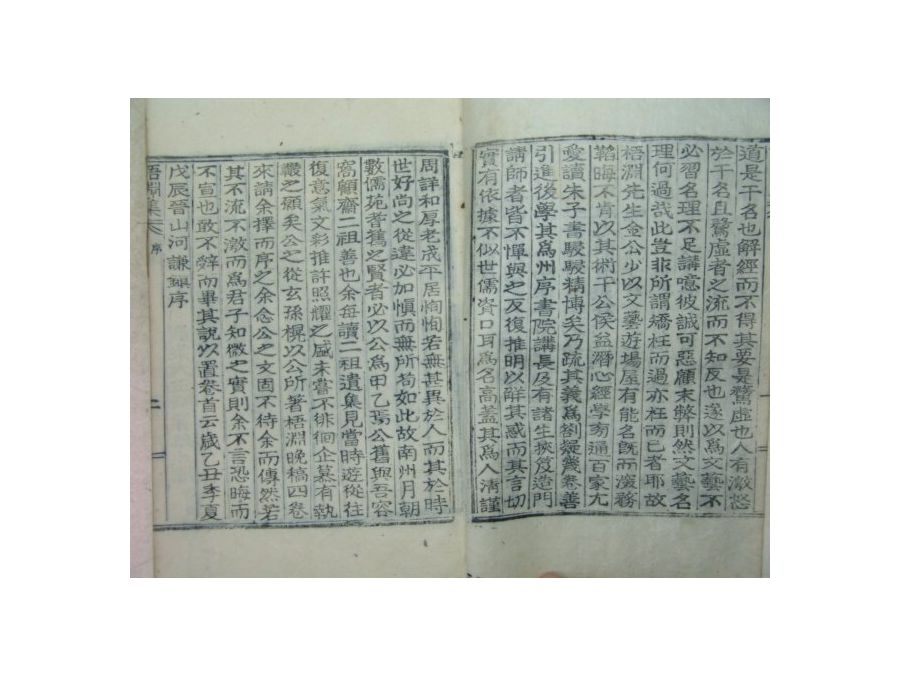 道是干名也解經而不得其要是騖虛也人有激怒
於干名且騖虛者之流而不知反也遂以爲文藝不
必習名理不足講噫彼誠可惡顧末弊則然文藝名
理何過哉此豈非所謂矯枉而過亦枉而已者耶故
梧淵先生金公少以文藝遊場屋有能名旣而深務
韜晦不肯以其術干公侯益潛心經學旁通百家尤
愛讀朱子書駸駸精博矣乃疏其義爲劄疑幾卷善
引進後學其爲州序書院講長及有諸生挾笈造門
請師者皆不憚與之反復推明以解其惑而其言切
實有依據不似世儒資口耳爲名高蓋其爲人淸謹
周詳和厚老成平居恂恂若無甚異於人而其於時
世好尙之從違必加愼而無所苟如此故南州月朝
數儒苑耆舊之賢者必以公爲甲乙焉公舊與吾容
窩顧齋二祖善也余每讀二祖遺集見當時遊從往
復意氣文彩推許照耀之盛未嘗不徘徊企慕有執
鞭之願矣公之從玄孫榥以公所著梧淵晩稿四卷
來請余擇而序之余念公之文固不待余而傳然若
其不流不激而爲君子知微之實則余不言恐晦而
不宣也敢不辭而畢其說以置卷首云歲乙丑季夏
戊辰晉山河謙鎭序
梧淵集 序 二